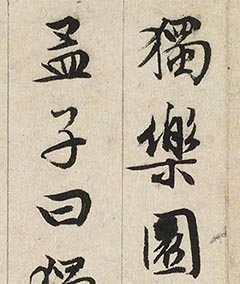 獨樂園
孟子曰獨